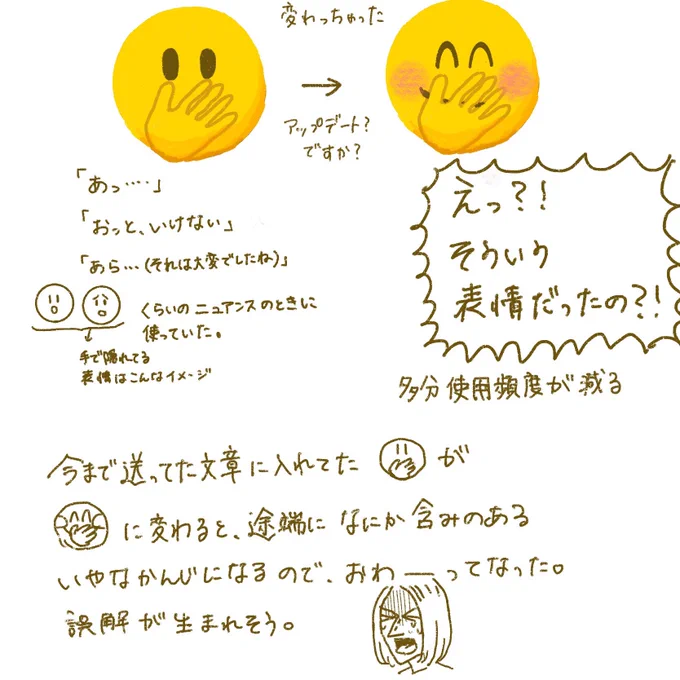 変わっちゃった
アップデート?
ですか?
「あっ‥‥」
「おっと、いけない」
「あら…(それは大変でしたね)」
くらいのニュアンスのときに
使っていた。
手で隠れてる
表情はこんなイメージ
えっ?!
そういう
表情だったの?!
多分使用頻度が減る
今まで送ってた文章に入れてた が
に変わると、途端になにか含みのある
いやなかんじになるので、おわ――ってなった。
誤解が生まれそう。